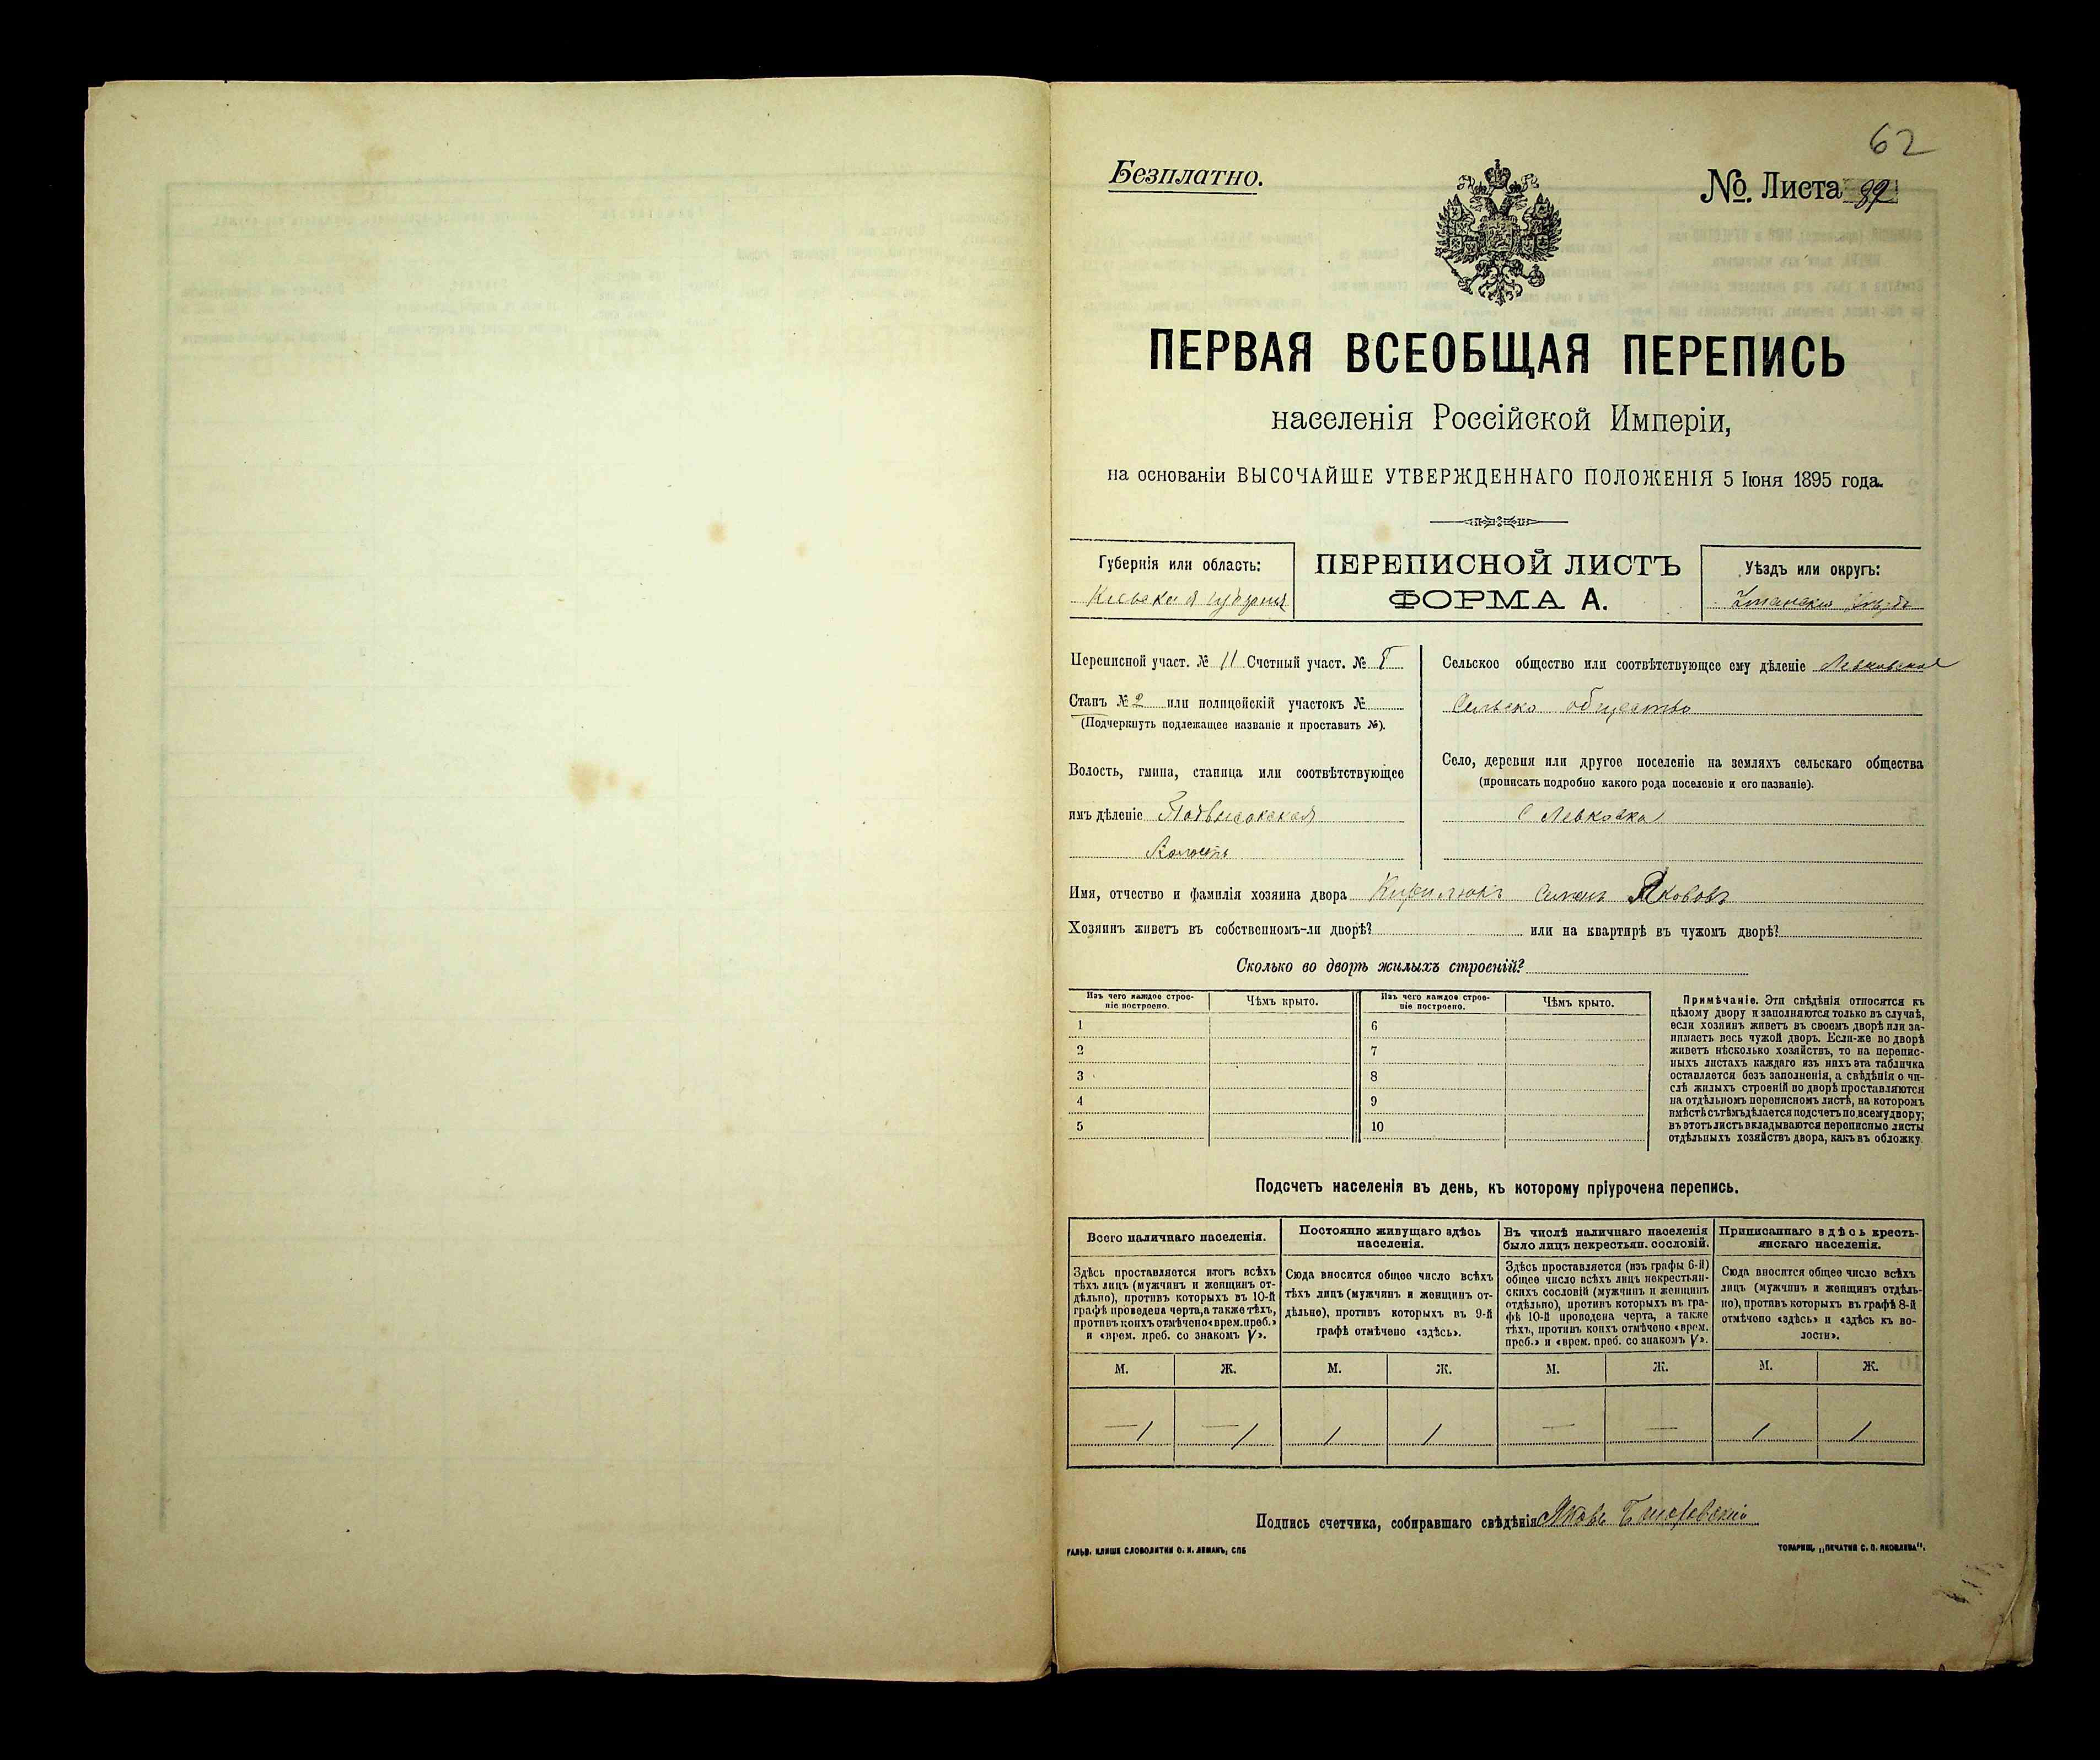 62
Безплатно.
№. Листа 89
ПЕРВАЯ ВСЕОБЩАЯ ПЕРЕПИСЬ
населенія Россійской Имперіи,
на основаніи ВЫСОЧАЙШЕ УТВЕРЖДЕННАГО ПОЛОЖЕНІЯ 5 Іюня 1895 года.
Губернія или область:
Кіевская губернія
ПЕРЕПИСНОЙ ЛИСТЪ
ФОРМА А.
Уѣздъ или округъ:
Уманскій уѣздъ
Переписной участ. № 11 Счетный участ. №
Станъ № 2 или полицейскій участокъ №
(Подчеркнуть подлежащее названіе и проставить №).
Волость, гмина, станица или соотвѣтствующее
имъ дѣленіе Подвысокская
Волость
Сельское общество или соотвѣтствующее ему дѣленіе Левковское
Сельско общество
Село, деревня или другое поселеніе на земляхъ сельскаго общества
(прописать подробно какого рода поселеніе и его названіе).
С Левковка
Имя, отчество и фамилія хозяина двора Семенъ Якововъ
Хозяинъ живетъ въ собственномъ-ли дворѣ? или на квартирѣ въ чужомъ дворѣ?
Сколько во дворѣ жилыхъ строеній?
Изъ чего каждое строе-
ніе построено.
Чѣмъ крыто.
Изъ чего каждое строе-
ніе построено.
Чѣмъ крыто.
1 6
2 7
3 8
4 9
5 10
Примѣчаніе. Эти свѣдѣнія относятся къ
цѣлому двору и заполняются только въ случаѣ,
если хозяинъ живетъ въ своемъ дворѣ или за-
нимаетъ весь чужой дворъ. Если-же во дворѣ
живетъ нѣсколько хозяйствъ, то на перепис-
ныхъ листахъ каждаго изъ нихъ эта табличка
оставляется безъ заполненія, а свѣдѣнія о чи-
слѣ жилыхъ строеній во дворѣ проставляются
на отдѣльномъ переписномъ листѣ, на которомъ
вмѣстѣ съ тѣмъ дѣлается подсчетъ по всему двору;
въ этотъ листъ вкладываются переписные листы
отдѣльныхъ хозяйствъ двора, какъ въ обложку
Подсчетъ населенія въ день, къ которому пріурочена перепись.
Всего наличнаго населенія.
Здѣсь проставляется итогъ всѣхъ
тѣхъ лицъ (мужчинъ и женщинъ от-
дѣльно), противъ которыхъ въ 10-й
графѣ проведена черта, а также тѣхъ,
противъ коихъ отмѣчено «врем. преб.»
и «врем. преб. со знакомъ V».
Постоянно живущаго здѣсь
населенія.
Сюда вносится общее число всѣхъ
тѣхъ лицъ (мужчинъ и женщинъ от-
дѣльно), противъ которыхъ въ 9-й
графѣ отмѣчено «здѣсь».
Въ числѣ наличнаго населенія
было лицъ некрестьян. сословій.
Здѣсь проставляется (изъ графы 6-й)
общее число всѣхъ лицъ некрестьян-
скихъ сословій (мужчинъ и женщинъ
отдѣльно), противъ которыхъ въ гра-
фѣ 10-й проведена черта, а также
тѣхъ, противъ коихъ отмѣчено «врем.
преб.» и «врем. преб. со знакомъ V».
Приписаннаго здѣсь кресть-
янскаго населенія.
Сюда вносится общее число всѣхъ
лицъ (мужчинъ и женщинъ отдѣль-
но), противъ которыхъ въ графѣ 8-й
отмѣчено «здѣсь» и «здѣсь къ во-
лости».
М. Ж. М. Ж. М. Ж. М. Ж.
— 1 — 1 1 1 — — 1 1
Подпись счетчика, собиравшаго свѣдѣнія Яковъ
ГАЛЬВ. КЛИШЕ СЛОВОЛИТНИ О. И. ЛЕМАНЪ, СПБ
ТОВАРИЩ. „ПЕЧАТНЯ С. П. ЯКОВЛЕВА".